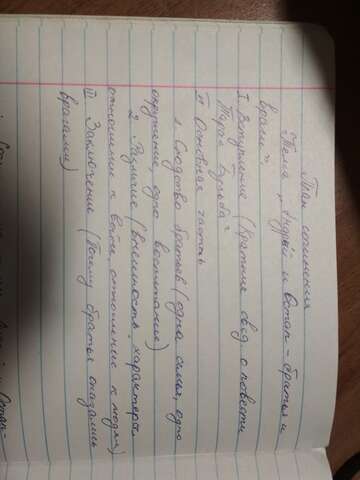 План сочинения
Тема „Андрий и Остап - братья и
враги".
I. Вступление (Краткие свед. о повести
„Тарас Бульба"
II Основная часть
1. Сходство братьев (одна семья, одно
окружение, одно воспитание)
2. Различие (внешность, характеры,
отношение к войне, отношение к людям)
III Заключение (Почему братья оказались
врагами)